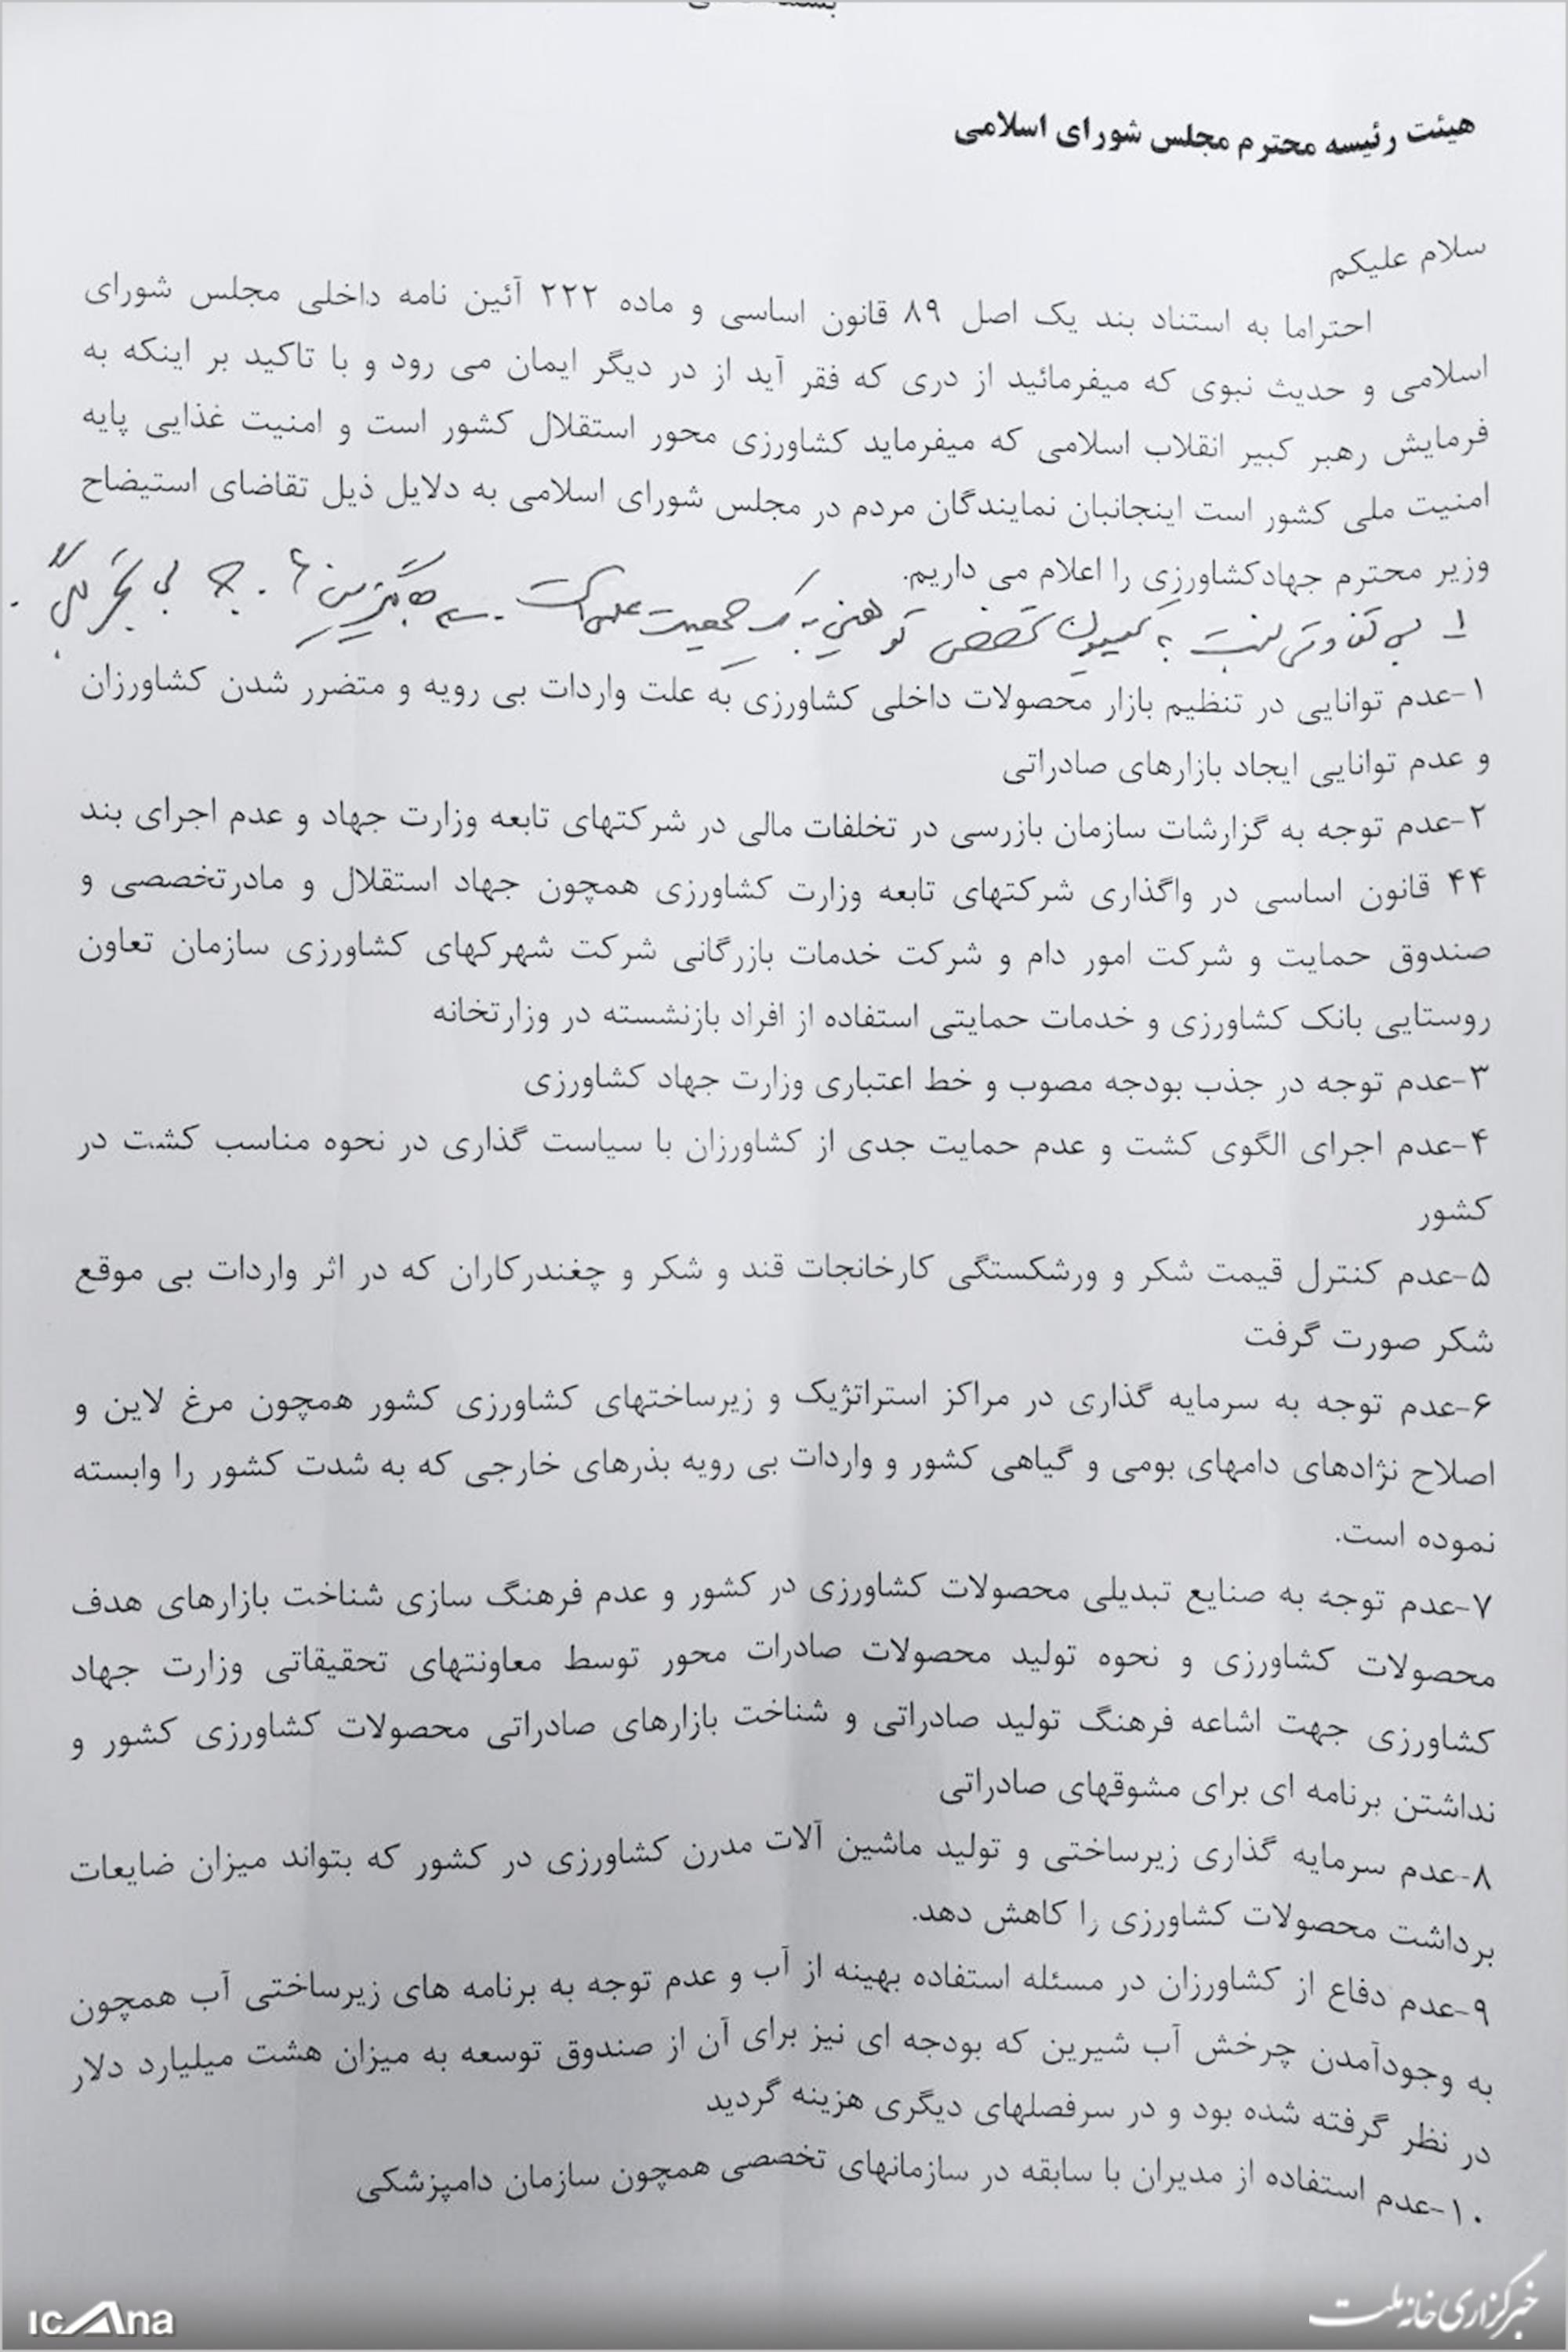 هیئت رئیسه محترم مجلس شورای اسلامی
سلام علیکم
احتراما به استناد بند یک اصل ۸۹ قانون اساسی و ماده ۲۲۲ آئین نامه داخلی مجلس شورای
اسلامی و حدیث نبوی که میفرمائید از دری که فقر آید از در دیگر ایمان می رود و با تاکید بر اینکه به
فرمایش رهبر کبیر انقلاب اسلامی که میفرماید کشاورزی محور استقلال کشور است و امنیت غذایی پایه
امنیت ملی کشور است اینجانبان نمایندگان مردم در مجلس شورای اسلامی به دلایل ذیل تقاضای استیضاح
وزیر محترم جهادکشاورزی را اعلام می داریم.
۱- بی تفاوتی نسبت به کمیسیون تخصصی
۱-عدم توانایی در تنظیم بازار محصولات داخلی کشاورزی به علت واردات بی رویه و متضرر شدن کشاورزان
و عدم توانایی ایجاد بازارهای صادراتی
۲-عدم توجه به گزارشات سازمان بازرسی در تخلفات مالی در شرکتهای تابعه وزارت جهاد و عدم اجرای بند
۴۴ قانون اساسی در واگذاری شرکتهای تابعه وزارت کشاورزی همچون جهاد استقلال و مادرتخصصی و
صندوق حمایت و شرکت امور دام و شرکت خدمات بازرگانی شرکت شهرکهای کشاورزی سازمان تعاون
روستایی بانک کشاورزی و خدمات حمایتی استفاده از افراد بازنشسته در وزارتخانه
۳-عدم توجه در جذب بودجه مصوب و خط اعتباری وزارت جهاد کشاورزی
۴-عدم اجرای الگوی کشت و عدم حمایت جدی از کشاورزان با سیاست گذاری در نحوه مناسب کشت در
کشور
۵-عدم کنترل قیمت شکر و ورشکستگی کارخانجات قند و شکر و چغندرکاران که در اثر واردات بی موقع
شکر صورت گرفت
۶-عدم توجه به سرمایه گذاری در مراکز استراتژیک و زیرساختهای کشاورزی کشور همچون مرغ لاین و
اصلاح نژادهای دامهای بومی و گیاهی کشور و واردات بی رویه بذرهای خارجی که به شدت کشور را وابسته
نموده است.
۷-عدم توجه به صنایع تبدیلی محصولات کشاورزی در کشور و عدم فرهنگ سازی شناخت بازارهای هدف
محصولات کشاورزی و نحوه تولید محصولات صادرات محور توسط معاونتهای تحقیقاتی وزارت جهاد
کشاورزی جهت اشاعه فرهنگ تولید صادراتی و شناخت بازارهای صادراتی محصولات کشاورزی کشور و
نداشتن برنامه ای برای مشوقهای صادراتی
۸-عدم سرمایه گذاری زیرساختی و تولید ماشین آلات مدرن کشاورزی در کشور که بتواند میزان ضایعات
برداشت محصولات کشاورزی را کاهش دهد.
۹-عدم دفاع از کشاورزان در مسئله استفاده بهینه از آب و عدم توجه به برنامه های زیرساختی آب همچون
به وجودآمدن چرخش آب شیرین که بودجه ای نیز برای آن از صندوق توسعه به میزان هشت میلیارد دلار
در نظر گرفته شده بود و در سرفصلهای دیگری هزینه گردید
۱۰-عدم استفاده از مدیران با سابقه در سازمانهای تخصصی همچون سازمان دامپزشکی
خبرگزاری خانه ملت
ICANA